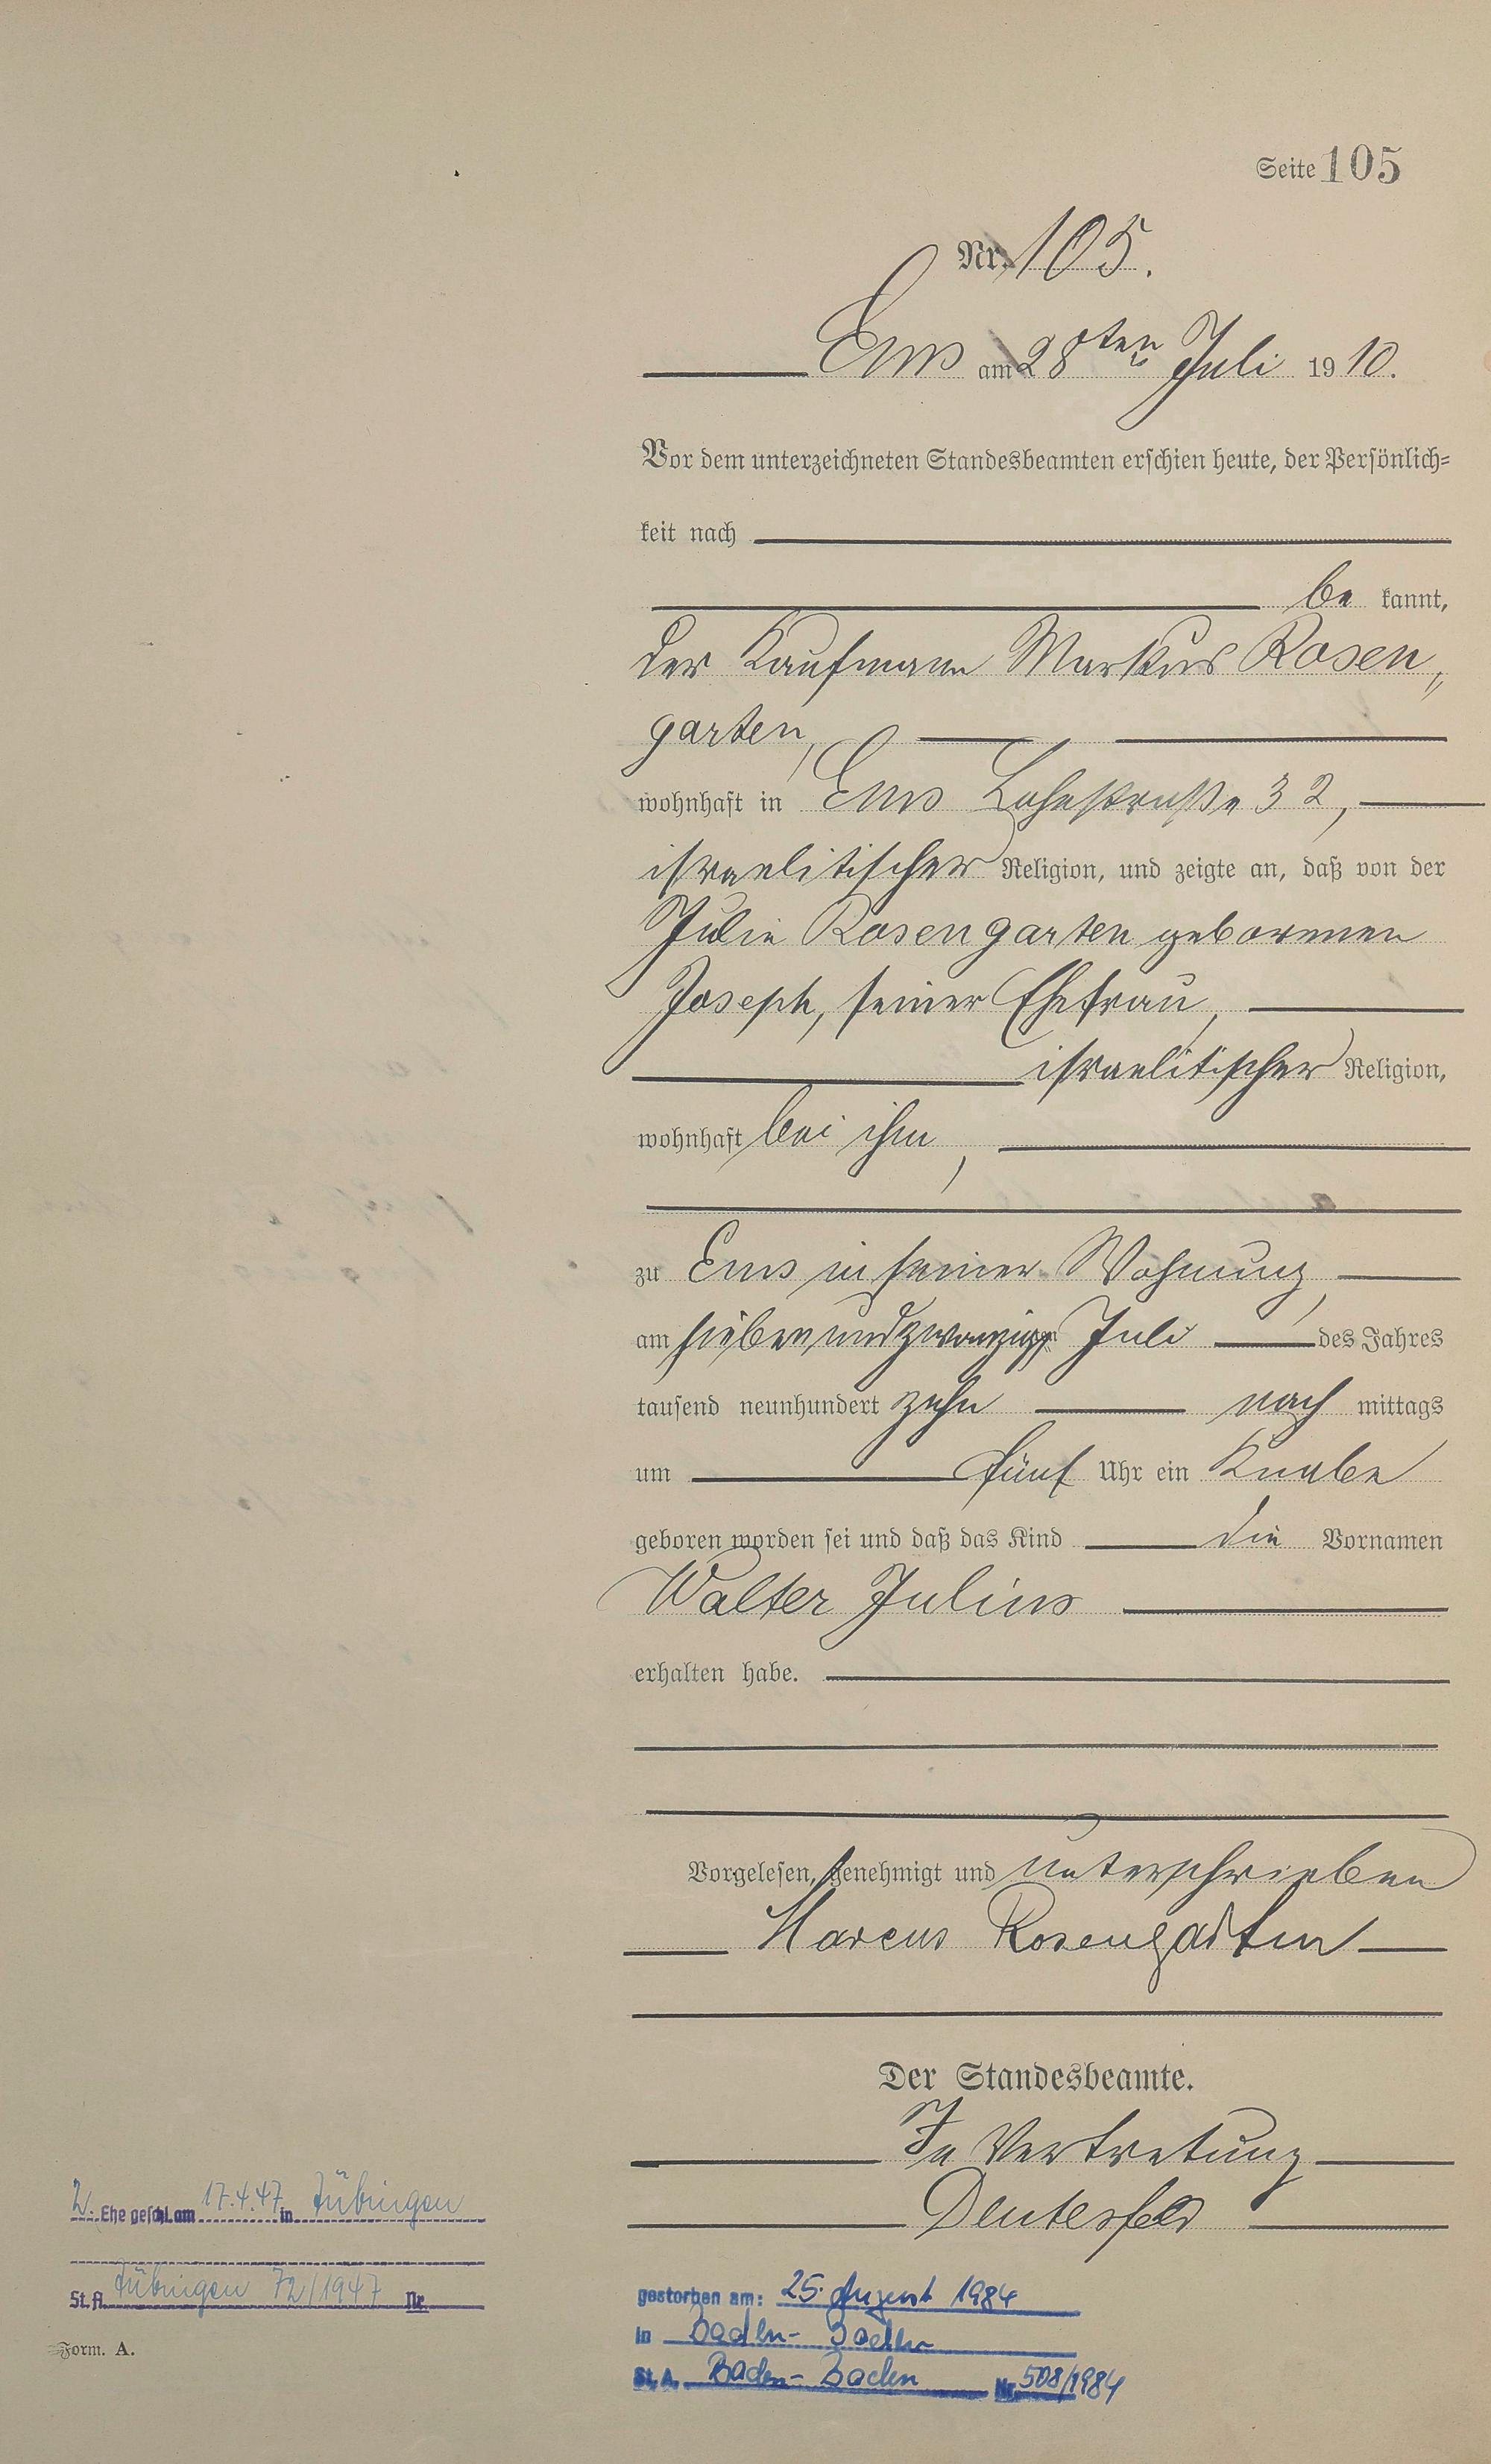 Seite 105
Nr. 105.
Ems am 28ten Juli 1910.
Vor dem unterzeichneten Standesbeamten erschien heute, der Persönlich-
keit nach
be kannt,
der Kaufmann Markus Rosen„
garten,
wohnhaft in Ems Lahnstraße 32,
israelitischer Religion, und zeigte an, daß von der
Julie Rosengarten geborenen
Joseph, seiner Ehefrau,
israelitischer Religion,
wohnhaft bei ihm,
zu Ems in seiner Wohnung,
am siebenundzwanzigsten Juli des Jahres
tausend neunhundert zehn nach mittags
um fünf Uhr ein Knabe
geboren worden sei und daß das Kind die Vornamen
Walter Julius
erhalten habe.
Vorgelesen, genehmigt und unterschrieben
Marcus Rosengarten
Der Standesbeamte.
In Vertretung
2. Ehe geschl. am 17.4.47 in Tübingen
St. A. Tübingen 72/1947 Nr.
gestorben am: 25. August 1984
in Baden-Baden
St. A. Baden-Baden Nr. 508/1984
Form. A.